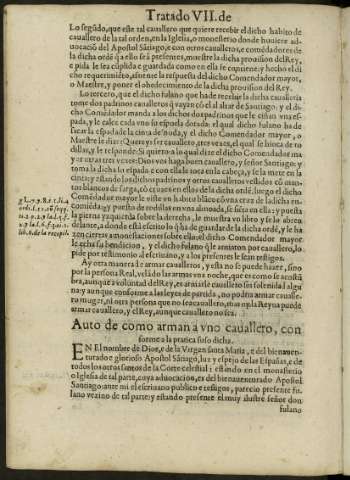 Tratado VII. de
Lo segũdo, que este tal cauallero que quiere recebir el dicho habito de
cauallero de la tal orden, en la Iglesia, o monesterio donde huuiere ad-
uocaciõ del Apostol Sãtiago, e con otros caualleros, e comẽdadores de
la dicha ordẽ q̃ a ello serã presentes, muestre la dicha prouision del Rey,
e pida le sea cũplida e guardada como en ella se cõtiene: y hecho el di
cho requerimiẽto, assiente la respuesta del dicho Comendador mayor,
o Maestre, y poner el obedecimiento de la dicha prouision del Rey.
Lo tercero, que el dicho fulano que ha de recebir la dicha caualleria
tome dos padrinos caualleros q̃ vayan cõ el al altar de Santiago: y el di-
cho Comẽdador manda a los dichos dos padrinos que le ciñan vna es-
pada, y le calce cada vno su espuela dorada. el qual dicho fulano ha de
sacar la espada de la cinta desnuda, y el dicho Comendador mayor, o
Maestre le dira: Quereys ser cauallero, tres vezes, el qual se hinca de ro
dillas, y le responde: Si quiero. a lo qual dize el dicho Comendador ma
yor otras tres vezes: Dios vos haga buen cauallero, y señor Santiago: y
toma la dicha espada e con ella le toca en la cabeça, y se la mete en la
cinta: y estando los dichos padrinos y otros caualleros vestidos cõ man-
tos blancos de sarga, cõ cruzes en ellos de la dicha ordẽ, luego el dicho
Comẽdador mayor le viste vn habito blãco cõ vna cruz de la dicha en-
comiẽda: y puesto de rodillas en vna almoada, se siẽta en ella: y puesta
la pierna yzquierda sobre la derecha, le muestra vn libro y se le abren
delante, a donde está escrito lo q̃ ha de guardar de la dicha ordẽ, y le ha
zen ciertas amonestaciones sobre ello: el dicho Comendador mayor
le echa su bendicion, y el dicho fulano q̃ le armaron por cauallero, lo
pide por testimonio al escriuano, y a los presentes le sean testigos.
Ay otra manera de armar caualleros, y esta no se puede hazer, sino
por la persona Real, velãdo las armas vna noche, que es como se acostũ
bra, aunque a voluntad del Rey, es armarle cauallero sin solenidad algu
na: y aunque conforme a las leyes de partida, no podrá armar caualle-
ro muger, ni otra persona que no sea cauallero, mas oy la Reyna puede
armar cauallero, y el Rey, aunque cauallero no sea.
Auto de como arman a vno cauallero, con
forme a la pratica suso dicha.
EN El nombre de Dios, e de la Vergen santa Maria, e del bienauen-
turado e glorioso Apostol Sãtiago, luz y espejo de las Españas, e de
todos los otros santos de la Corte celestial: estando en el monasterio
o Iglesia de tal parte, cuya aduocacion, es del bienauenturado Apostol
Santiago: ante mi el escriuano publico e testigos, parecio presente fu-
lano vezino de tal parte: y estando presente el muy ilustre señor don
fulano